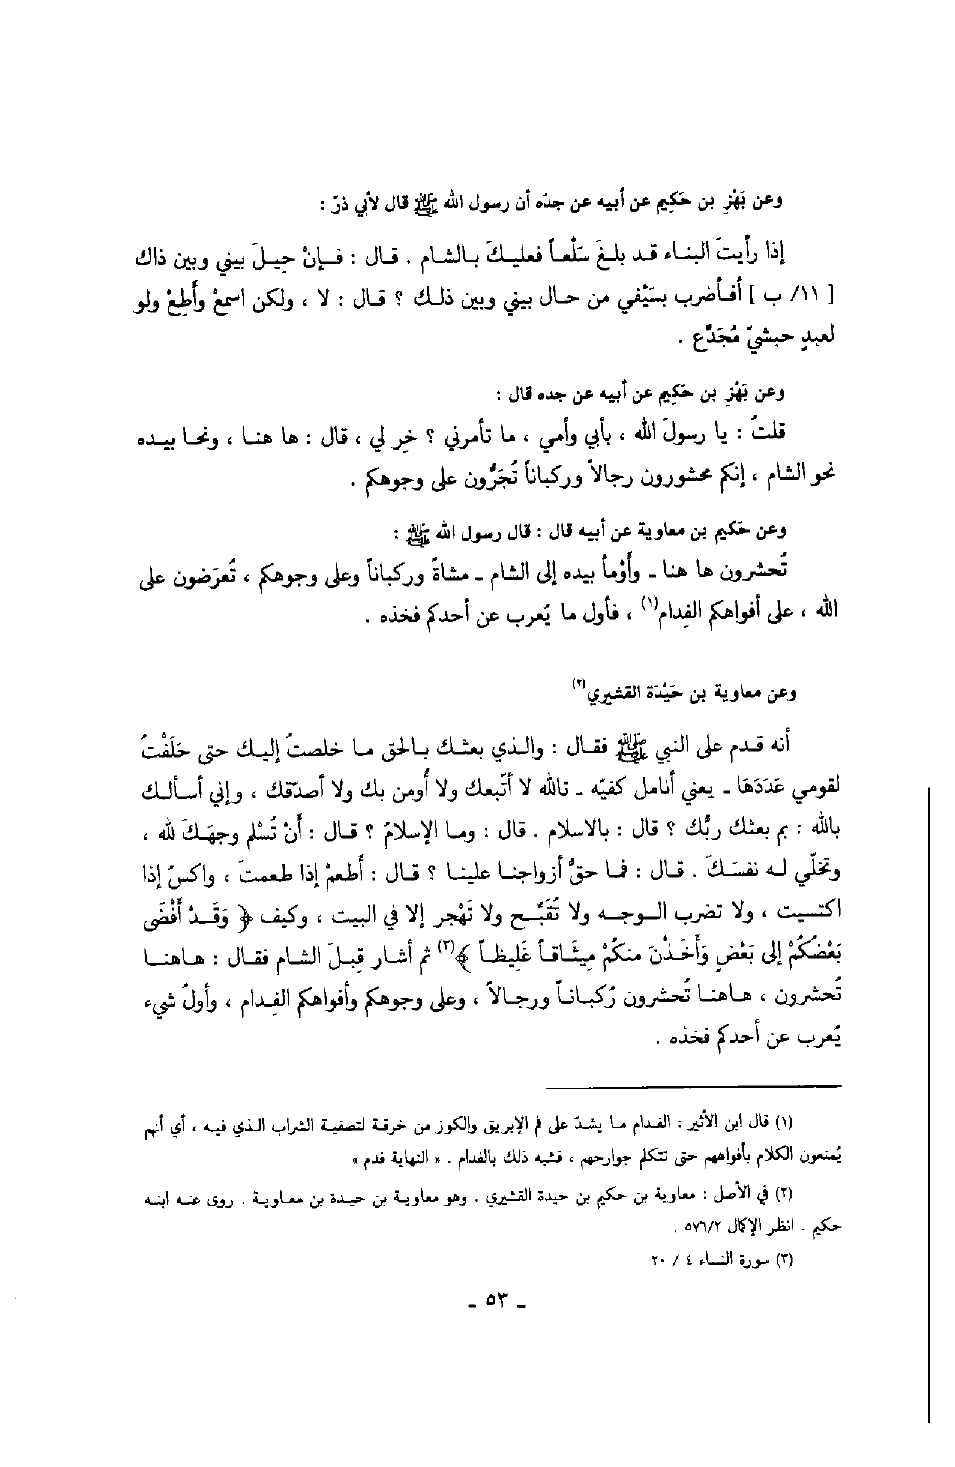 وعن بَهْزِ بن حَكِيم عن أبيه عن جدّه أن رسول الله ﷺ قال لأبي ذرّ :
إذا رأيتَ البناء قد بلغَ سَلْعاً فعليكَ بالشام . قال : فإنْ حِيلَ بيني وبين ذاك
[ ١١/ ب ] أفأضرب بسَيْفي من حال بيني وبين ذلك ؟ قال : لا ، ولكن اسمعْ وأَطِعْ ولو
لعبدٍ حبشيّ مُجَدَّع .
وعن بَهْزِ بن حَكِيم عن أبيه عن جده قال :
قلتُ : يا رسولَ الله ، بأبي وأمي ، ما تأمرني ؟ خِر لي ، قال : ها هنا ، ونحا بيده
نحو الشام ، إنكم محشورون رجالاً وركباناً تُجَرُّون على وجوهكم .
وعن حَكيم بن معاوية عن أبيه قال : قال رسول الله ﷺ :
تُحشرون ها هنا ـ وأَوْمأ بيده إلى الشام ـ مشاةً وركباناً وعلى وجوهكم ، تُعرَضون على
الله ، على أفواهكم الفِدام(١) ، فأول ما يُعرب عن أحدكم فخذه .
وعن معاوية بن حَيْدَة القشيري(٢)
أنه قدم على النبي ﷺ فقال : والذي بعثك بالحق ما خلصتُ إليك حتى حَلَفْتُ
لقومي عَدَدَهَا ـ يعني أنامل كفيّه ـ تالله لا أتبعك ولا أُومن بك ولا أصدّقك ، وإني أسألك
بالله : بم بعثك ربُّك ؟ قال : بالاسلام . قال : وما الإسلامُ ؟ قال : أنْ تُسْلِم وجهَكَ لله ،
وتخلّي له نفسَكَ . قال : فما حقُّ أزواجنا علينا ؟ قال : أطعمْ إذا طعمتَ ، واكسُ إذا
اكتسيت ، ولا تضرب الوجه ولا تُقَبِّح ولا تَهْجر إلا في البيت ، وكيف ﴿ وَقَدْ أَفْضَى
بَعْضُكُمْ إلى بَعْضٍ وَأَخَذْنَ منكُمْ مِيثَاقاً غَلِيظاً ﴾(٣) ثم أشار قِبلَ الشام فقال : هاهنا
تُحشرون ، هاهنا تُحشرون رُكباناً ورجالاً ، وعلى وجوهكم وأفواهكم الفِدام ، وأولُ شيء
يُعرب عن أحدكم فخذه .
(١) قال ابن الأثير : الفدام ما يشدّ على فم الإبريق والكوز من خرقة لتصفية الشراب الذي فيه ، أي أنهم
يُمنعون الكلام بأفواههم حتى تتكلم جوارحهم ، فشبه ذلك بالفدام . « النهاية فدم »
(٢) في الأصل : معاوية بن حكيم بن حيدة القشيري . وهو معاوية بن حيدة بن معاوية . روى عنه ابنه
حكيم . انظر الإكمال ٥٧٦/٢ .
(٣) سورة النساء ٤ / ٢٠
ـ ٥٣ ـ